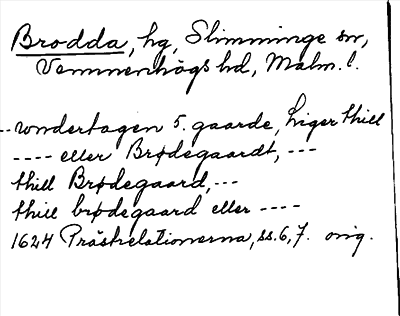 Brodda, hg, Slimminge sn,
Vemmenhögs hd, Malm. l.
--undertagen 5. gaarde, liger thill
---- eller Brødegaardt, ---
thill Brødegaard, ---
thill brødegaard eller ----
1624 Prästrelationerna, ss. 6, 7. orig.